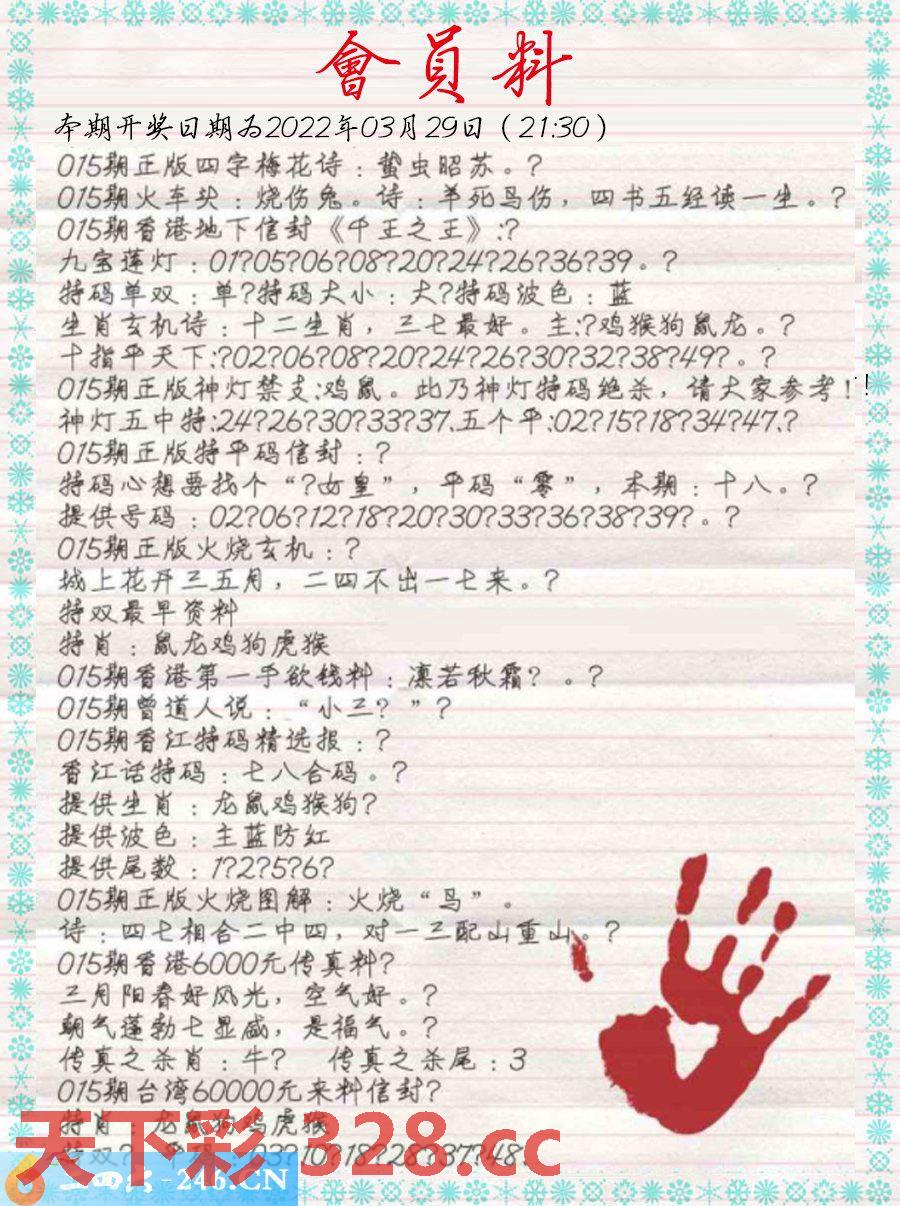 會員料
本期开奖日期为2022年03月29日（21:30）
015期正版四字梅花诗：蛰虫昭苏。?
015期火车头：烧伤兔。诗：羊死马伤，四书五经读一生。?
015期香港地下信封《千王之王》:?
九宝莲灯：01?05?06?08?20?24?26?36?39。?
特码单双：单?特码大小：大?特码波色：蓝
生肖玄机诗：十二生肖，三七最好。主:?鸡猴狗鼠龙。?
十指平天下:?02?06?08?20?24?26?30?32?38?49?。?
015期正版神灯禁支:鸡鼠。此乃神灯特码绝杀，请大家参考!!
神灯五中特:24?26?30?33?37.五个平:02?15?18?34?47.?
015期正版特平码信封：?
特码心想要找个“?女皇”，平码“零”，本期：十八。?
提供号码：02?06?12?18?20?30?33?36?38?39?。?
015期正版火烧玄机：?
城上花开三五月，二四不出一七来。?
特双最早资料
特肖：鼠龙鸡狗虎猴
015期香港第一手欲钱料：凛若秋霜? 。?
015期曾道人说：“小三?”?
015期香江特码精选报：?
香江话特码：七八合码。?
提供生肖：龙鼠鸡猴狗?
提供波色：主蓝防红
提供尾数：1?2?5?6?
015期正版火烧图解：火烧“马”。
诗：四七相合二中四，对一三配山重山。?
015期香港6000元传真料?
三月阳春好风光，空气好。?
朝气蓬勃七显威，是福气。?
传真之杀肖：牛? 传真之杀尾：3
015期台湾60000元来料信封?
特肖：龙鼠狗鸡虎猴
特双? 平 03?10?18?28?37?48.
天下彩 328.cc
二四六-246.CN